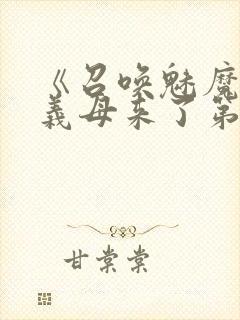 《召唤魅魔
義母来了第
甘棠棠